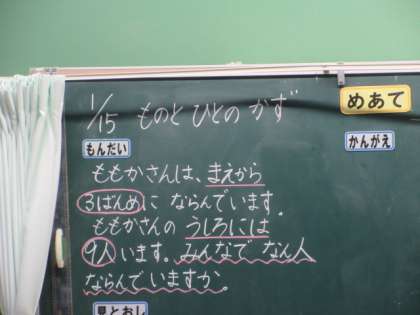 めあて
1/15 ものと ひとの かず
かんがえ
もんだい
ももかさんは、まえから
3ばんめに ならんでいます。
ももかさんの うしろには
9人います。みんなで なん人
ならんでいますか。
見とおし